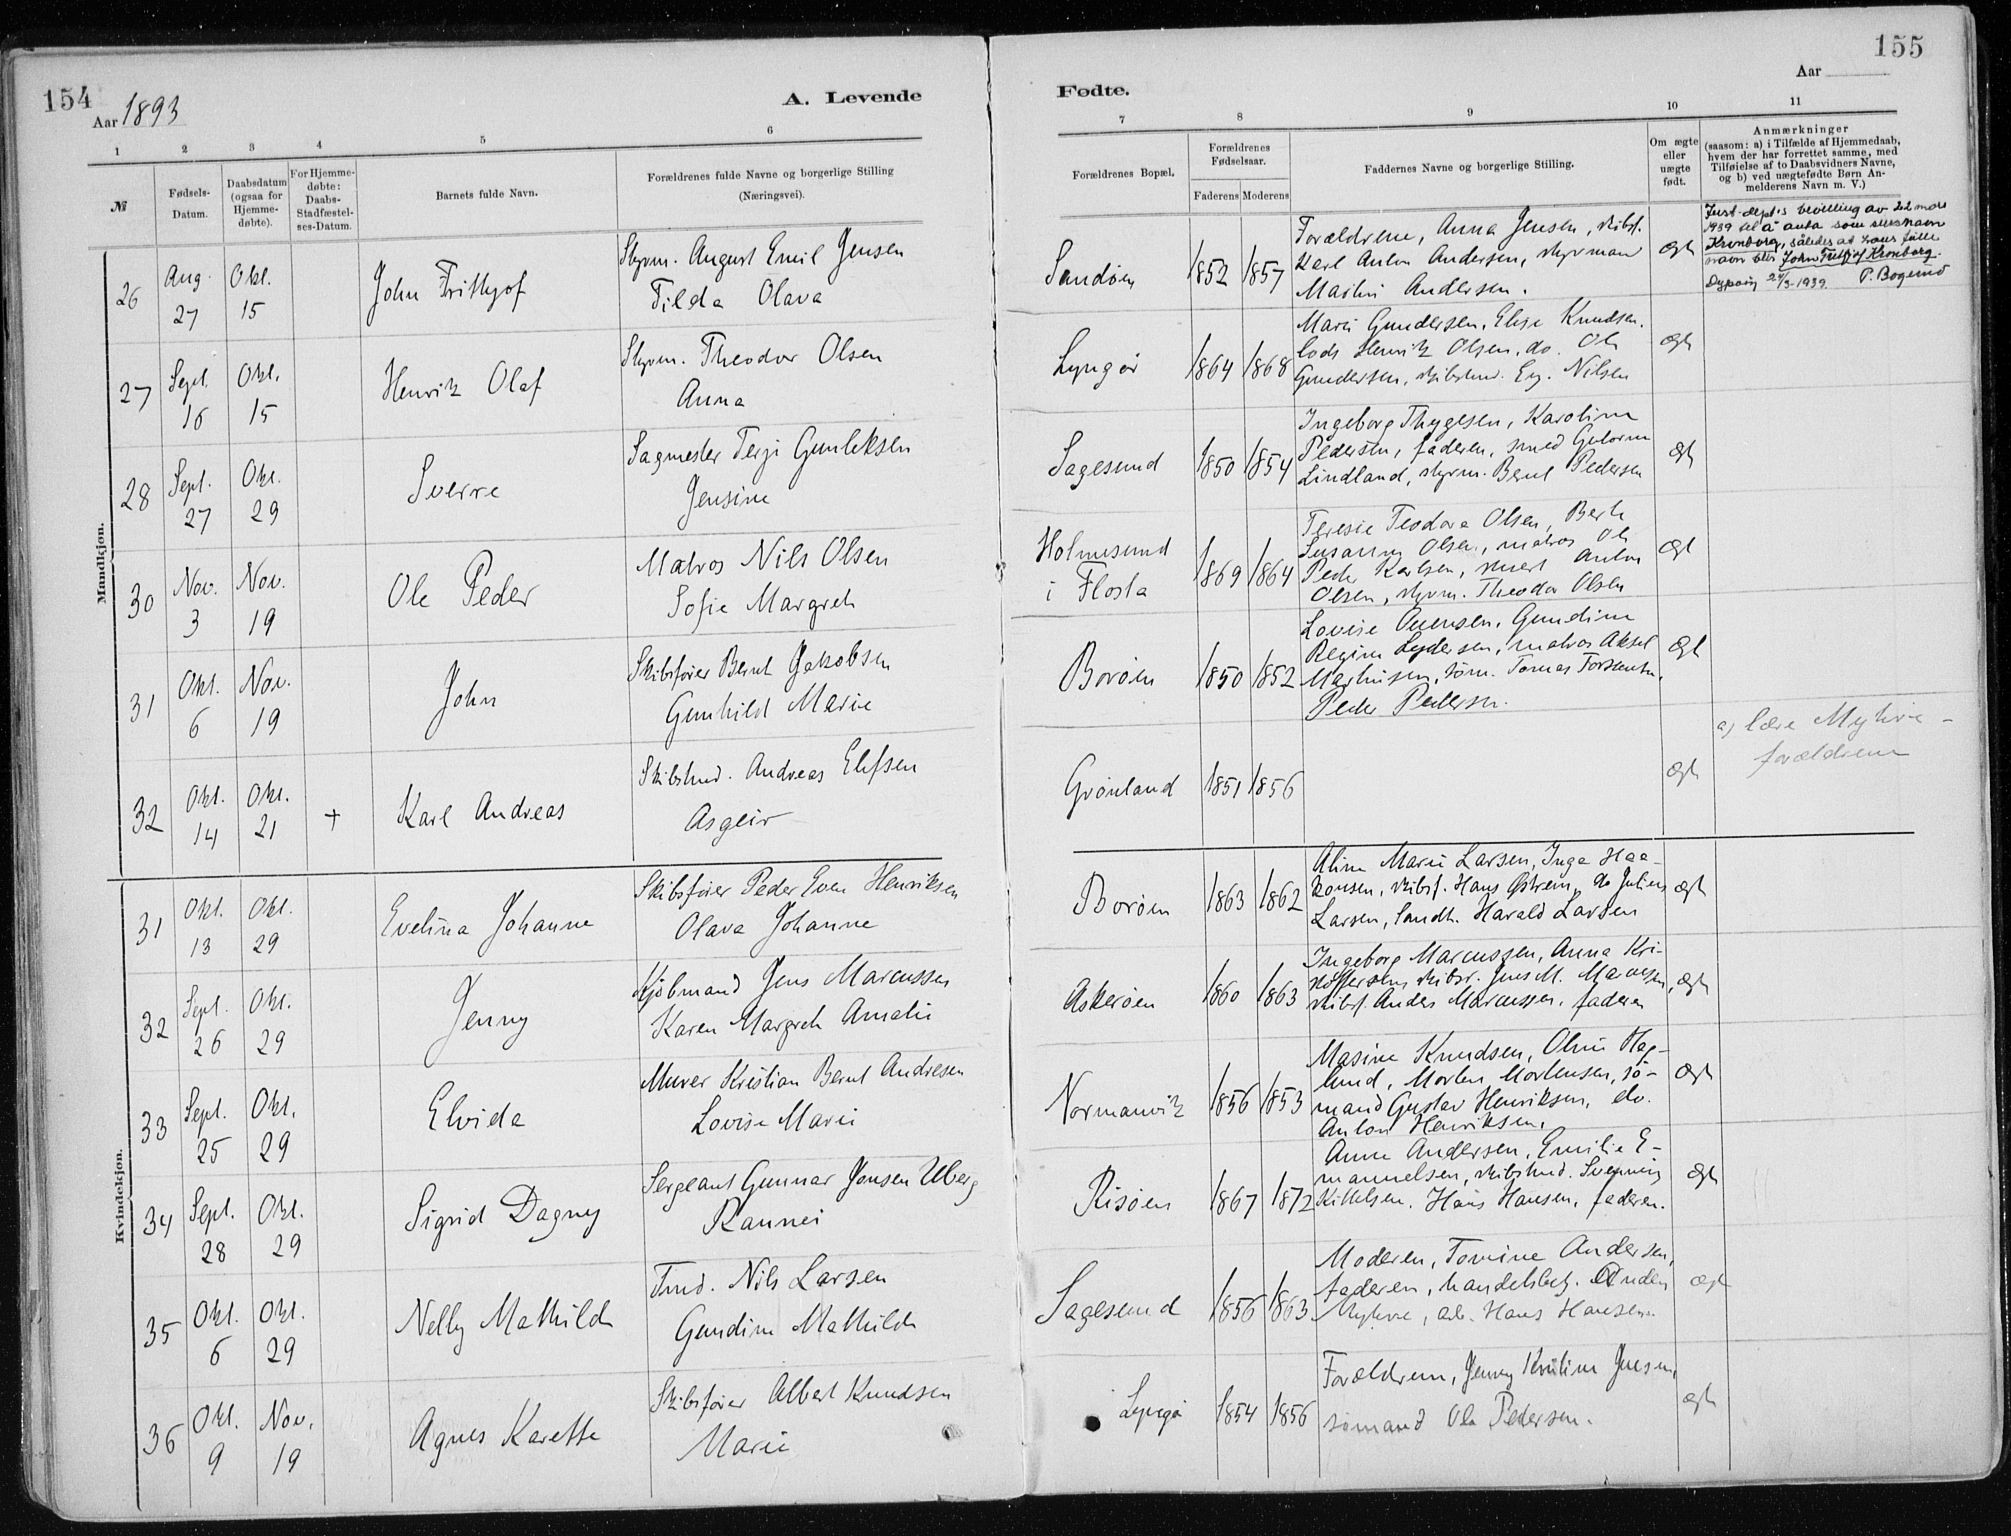 154
Aar 1893
A. Levende
1 2 3 4 5 6
№
Fødsels-
Datum.
Daabsdatum
(ogsaa for
Hjemme-
døbte).
For Hjemme-
døbte:
Daabs-
Stadfæstel-
ses-Datum.
Barnets fulde Navn.
Forældrenes fulde Navne og borgerlige Stilling
(Næringsvei).
Mandkjøn.
26 Aug. 27 Okt. 15 John Frithjof
Styrm. August Emil Jensen
Tilda Olava
27 Sept. 16 Okt. 15 Henrik Olaf
Styrm. Theodor Olsen
Anna
28 Sept. 27 Okt. 29 Sverre
Sagmester Terje Gunleksen
Jensine
30 Nov. 3 Nov. 19 Ole Peder
Matros Nils Olsen
Sofie Margreth
31 Okt. 6 Nov. 19 John
Skibsfører Bernt Jakobsen
Gunhild Marie
32 Okt. 14 Okt. 21 + Karl Andreas
Skibstmd. Andreas Elefsen
Asgeir
Kvindekjøn.
31 Okt. 13 Okt. 29 Evelina Johanne
Skibsfører Peder Even Henriksen
Olava Johanne
32 Sept. 26 Okt. 29 Jenny
Kjøbmand Jens Marcussen
Karen Margreth Amalie
33 Sept. 25 Okt. 29 Elvida
Murer Kristian Bernt Andresen
Lovise Marie
34 Sept. 28 Okt. 29 Sigrid Dagny
Sergeant Gunnar Jensen Uberg
Rannei
35 Okt. 6 Okt. 29 Nelly Mathilde
Tmd. Nils Larsen
Gundine Mathilde
36 Okt. 9 Nov. 19 Agnes Karette
Skibsfører Albert Knudsen
Marie
155
Fødte.
Aar
7 8 9 10 11
Forældrenes Bopæl.
Forældrenes
Fødselsaar.
Faderens Moderens
Faddernes Navne og borgerlige Stilling.
Om ægte
eller
uægte
født.
Anmærkninger
(saasom: a) i Tilfælde af Hjemmedaab,
hvem der har forrettet samme, med
Tilføielse af to Daabsvidners Navne,
og b) ved uægtefødte Børn An-
melderens Navn m. V.)
Sandøen 1852 1857
Forældrene, Anna Jensen, skibsf.
Karl Anton Andersen, styrman
Martin Andersen.
ægte
Just.-dept's bevilling av 22 mars
1939 til å anta som slektsnavn
Kronborg, således at hans fulle
navn blir John Frithjof Kronborg.
Dypvåg 24/3-1939. P. Bogerud
Lyngør 1864 1868
Marie Gundersen, Elise Knudsen.
lods Henrik Olsen, do. Ole
Gundersen, skibstmd. Eg. Nilsen
ægte
Sagesund 1850 1854
Ingeborg Thygesen, Karoline
Pedersen, faderen, smed Guttorm
Lindland, styrm. Bernt Pedersen
ægte
Holmesund
i Flosta 1869 1864
Teresie Teodora Olsen, Berte
Susanne Olsen, matros Ole
Peder Karlsen, stuert Anton
Olsen, styrm. Theodor Olsen
ægte
Borøen 1850 1852
Lovise Evensen, Gundine
Regine Lydersen, matros Aksel
Martinsen, tøm. Tomas Torstensen,
Peder Pedersen.
ægte
Grønland 1851 1856 ægte
a) lære Myhre -
forældrene
Borøen 1863 1862
Aline Marie Larsen, Inga Haa-
konsen, skibsf. Hans Østrem, do Julius
Larsen, landh. Harald Larsen
ægte
Askerøen 1860 1863
Ingeborg Marcussen, Anna Kri-
stoffersen, skibsr. Jens M. Marcussen,
skibsf. Anders Marcussen, faderen
ægte
Normanvik 1856 1853
Masine Knudsen, Oline Hag-
lund, Morten Mortensen, sø-
mand Gustav Henriksen, do.
Anton Henriksen.
ægte
Risøen 1867 1872
Anne Andersen, Emilie E-
manuelsen, skibstmd. Svenning
Kittelsen, Hans Hansen, faderen.
ægte
Sagesund 1856 1863
Moderen, Tomine Andersen,
faderen, handelsbetj. Anden
Myhre, arb. Hans Hansen.
ægte
Lyngør 1854 1856
Forældrene, Jenny Kristine Jensen,
sømand Ole Pedersen.
ægte